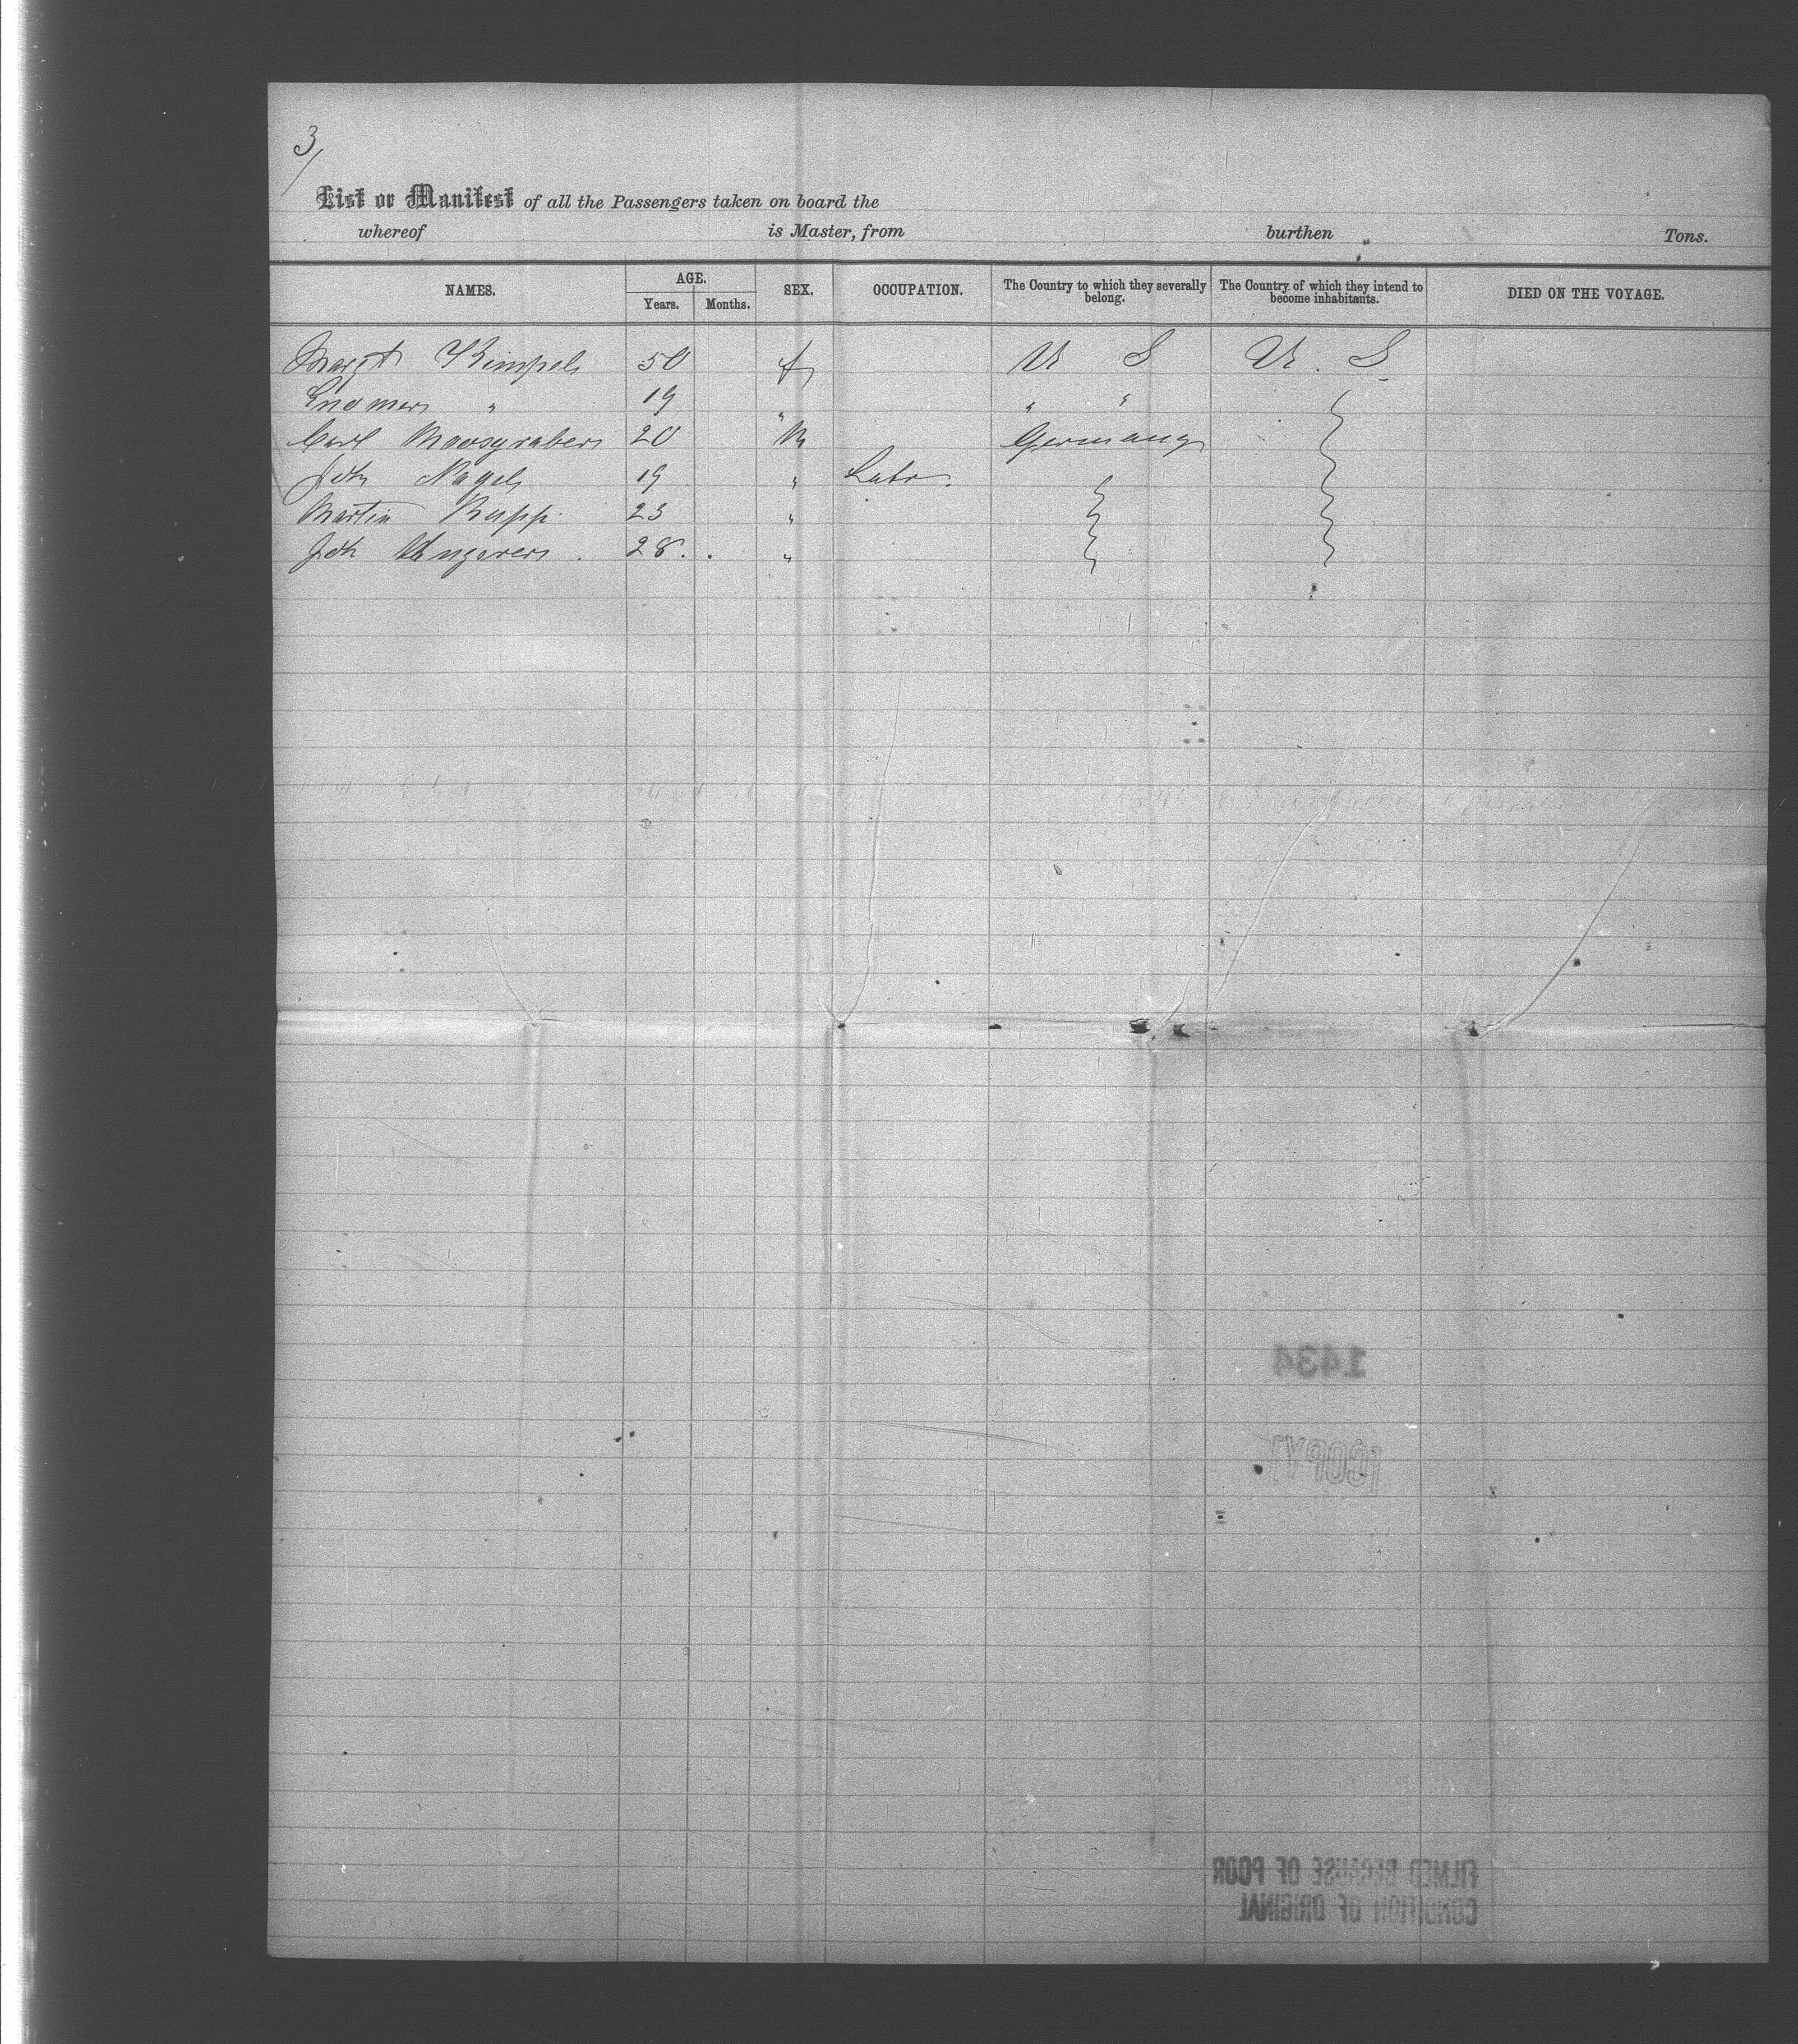 3/
List or Manifest of all the Passengers taken on board the
whereof is Master, from burthen Tons.
NAMES. AGE. Years. Months. SEX. OCCUPATION. The Country to which they severally belong. The Country of which they intend to become inhabitants. DIED ON THE VOYAGE.
Margt Kimpel 50 f U S U. S
" 19 " " "
Carl Moosgraber 20 M Germany
Joh Nagel 19 " Labr.
Martin Rupp 23 "
Joh Ungerer 28. "
1434
[COPY]
FILMED BECAUSE OF POOR
CONDITION OF ORIGINAL